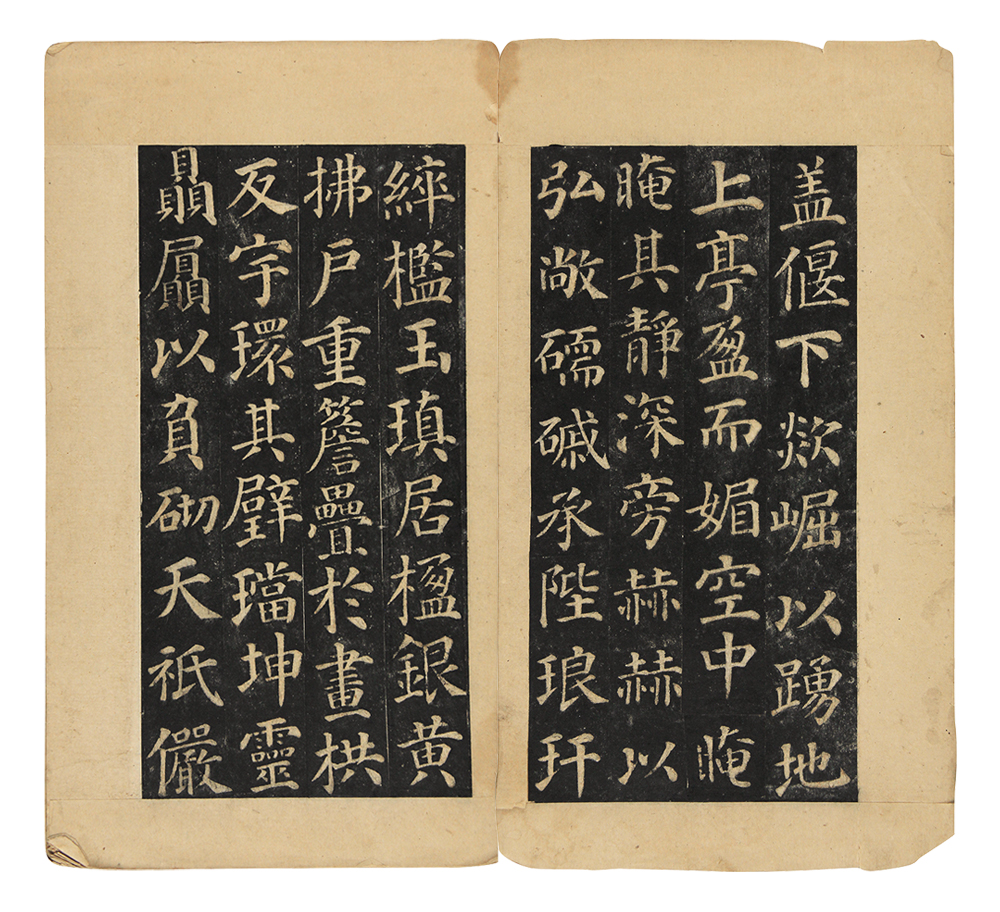 盖偃下欻崛以踴地
上亭盈而媚空中晻
晻其靜深旁赫赫以
弘敞礝磩承陛琅玕
綷檻玉瑱居楹銀黃
拂戶重簷疊於畫栱
反宇環其璧璫坤靈
贔屭以負砌天祇儼